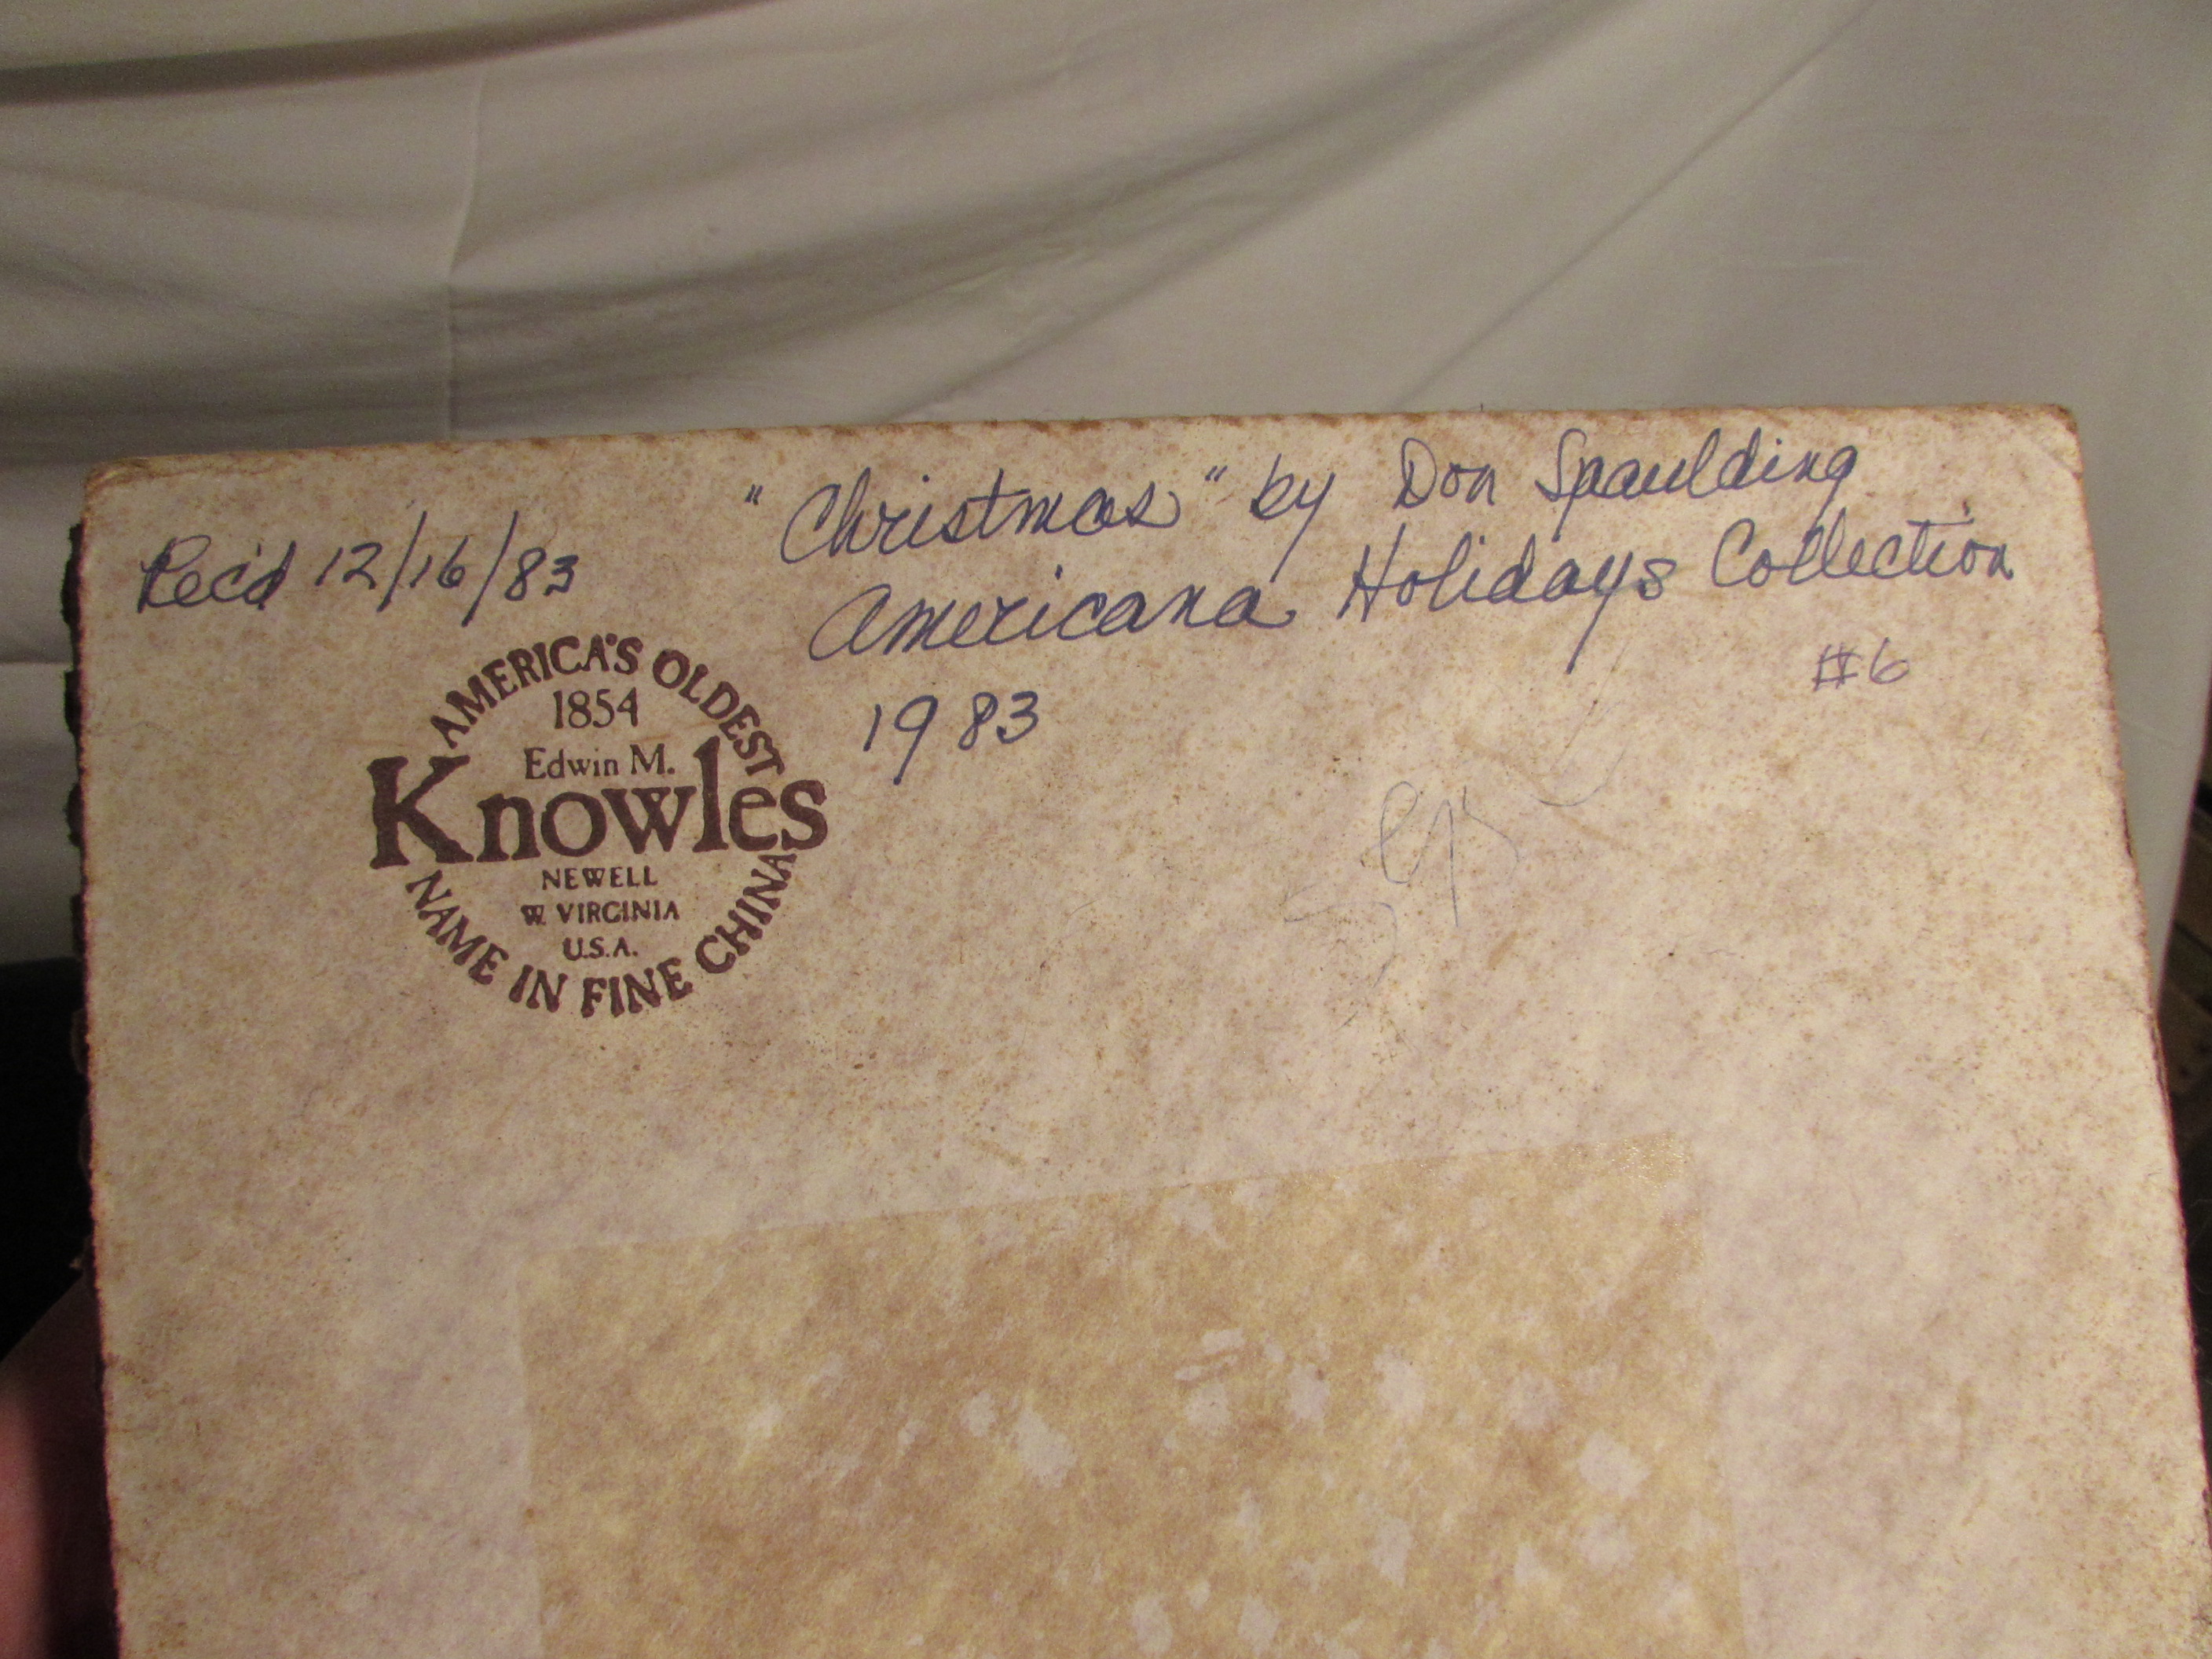 "Christmas" by Don Spaulding
Rec'd 12/16/83
Americana Holidays Collection
#6
1983
AMERICA'S OLDEST
1854
Edwin M.
Knowles
NEWELL
W. VIRGINIA
U.S.A.
NAME IN FINE CHINA